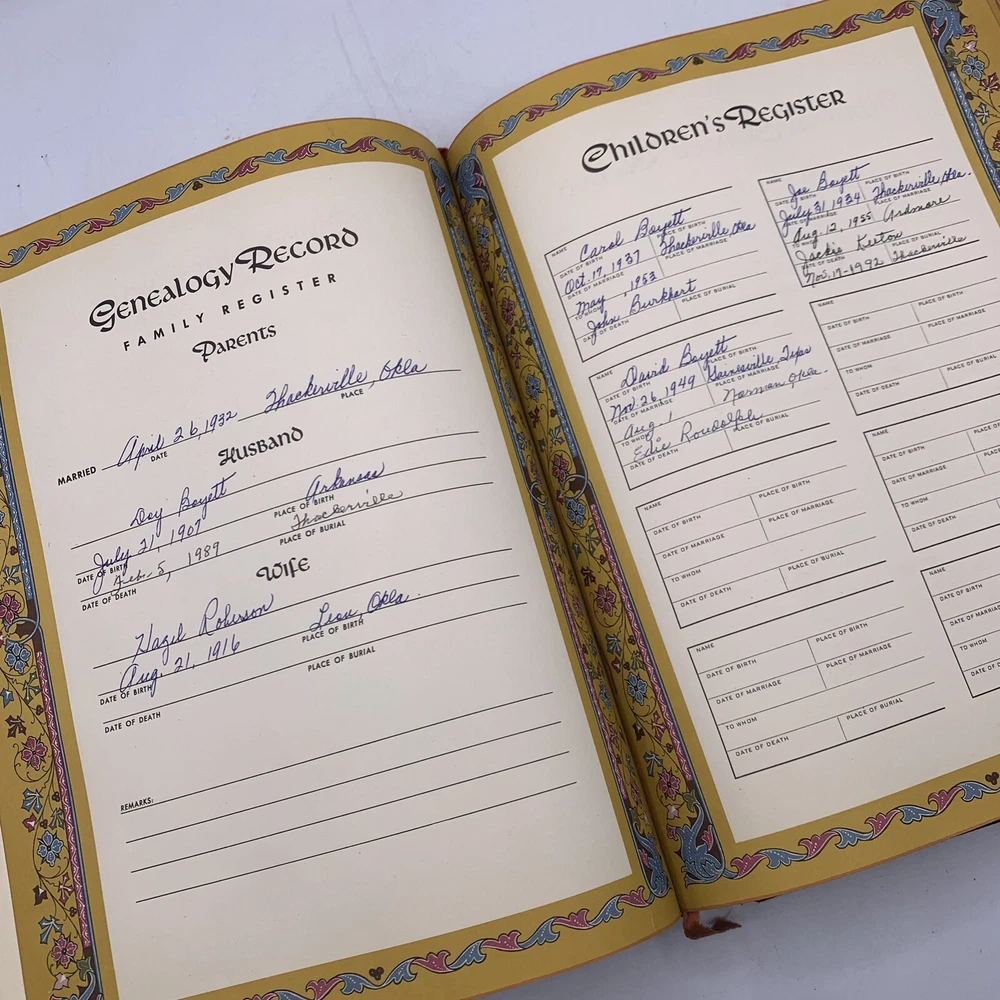 Genealogy Record
FAMILY REGISTER
Parents
MARRIED April 26, 1932 Thackerville, Okla
DATE PLACE
Husband
Doy Boyett Arkansas
July 21, 1907 PLACE OF BIRTH
DATE OF BIRTH Thackerville
Feb. 5, 1989 PLACE OF BURIAL
DATE OF DEATH
Wife
Hazel Roberson Leon, Okla.
Aug. 21, 1916 PLACE OF BIRTH
DATE OF BIRTH PLACE OF BURIAL
DATE OF DEATH
REMARKS:
Children's Register
NAME Carol Boyett
DATE OF BIRTH PLACE OF BIRTH
Oct. 17, 1937 Thackerville, Okla
DATE OF MARRIAGE PLACE OF MARRIAGE
May , 1953
TO WHOM
John Burkhart
DATE OF DEATH PLACE OF BURIAL
NAME David Boyett
DATE OF BIRTH PLACE OF BIRTH
Nov. 26, 1949 Gainesville, Texas
DATE OF MARRIAGE PLACE OF MARRIAGE
Aug. 1 Norman Okla.
TO WHOM
Edie Roudolph
DATE OF DEATH PLACE OF BURIAL
NAME
DATE OF BIRTH PLACE OF BIRTH
DATE OF MARRIAGE PLACE OF MARRIAGE
TO WHOM
DATE OF DEATH PLACE OF BURIAL
NAME
DATE OF BIRTH PLACE OF BIRTH
DATE OF MARRIAGE PLACE OF MARRIAGE
TO WHOM
DATE OF DEATH PLACE OF BURIAL
NAME Joe Boyett
DATE OF BIRTH PLACE OF BIRTH
July 31 1934 Thackerville, Okla.
DATE OF MARRIAGE PLACE OF MARRIAGE
Aug 12, 1955 Ardmore
TO WHOM
Jackie Keeton
DATE OF DEATH PLACE OF BURIAL
Nov. 17-1992 Thackerville
NAME
DATE OF BIRTH PLACE OF BIRTH
DATE OF MARRIAGE PLACE OF MARRIAGE
TO WHOM
DATE OF DEATH PLACE OF BURIAL
NAME
DATE OF BIRTH PLACE OF
DATE OF MARRIAGE PLACE OF
TO WHOM
DATE OF DEATH PLACE
NAME
DATE OF BIRTH
DATE OF MARRIAGE
TO WHOM
DATE OF DEATH